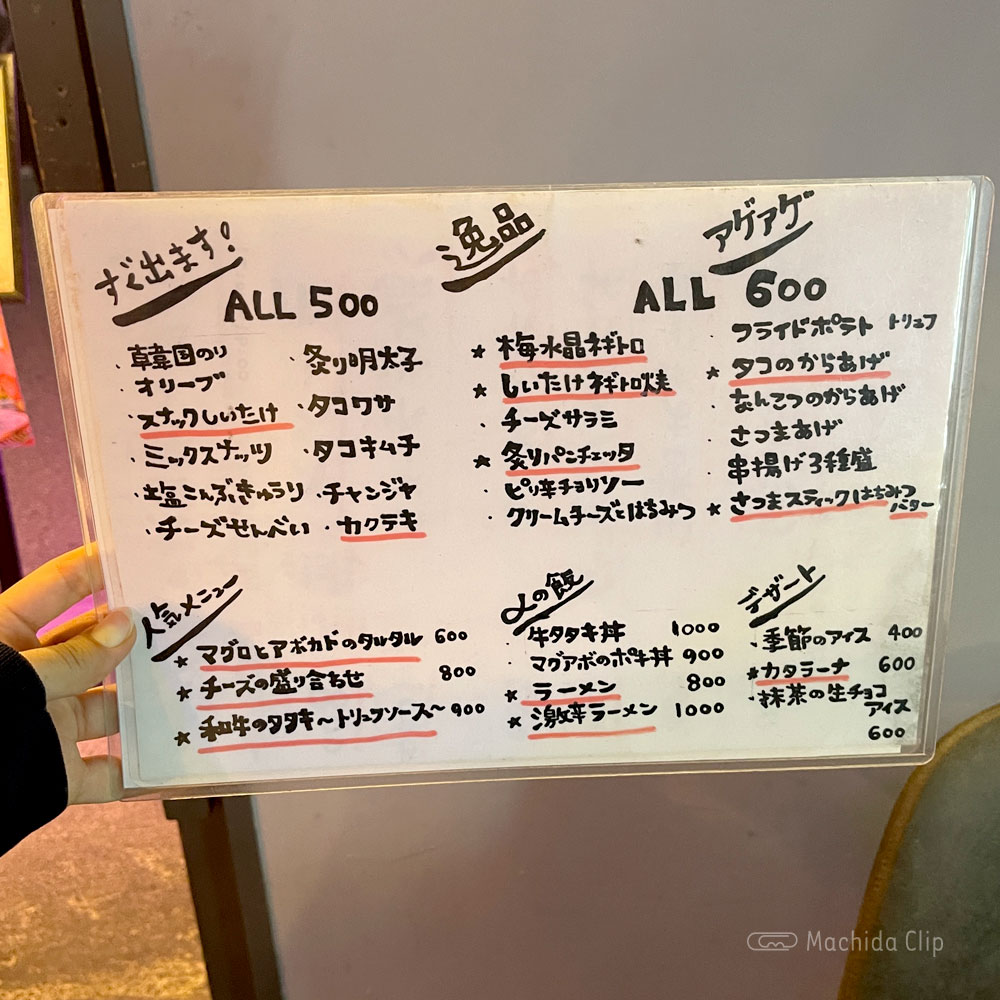 すぐ出ます!
ALL 500
・韓国のり
・オリーブ
・スナックしいたけ
・ミックスナッツ
・塩こんぶきゅうり
・チーズせんべい
・炙り明太子
・タコワサ
・タコキムチ
・チャンジャ
・カクテキ
逸品
ALL 600
★梅水晶ネギトロ
★しいたけネギトロ焼
・チーズサラミ
★炙りパンチェッタ
・ピリ辛チョリソー
・クリームチーズとはちみつ
アゲアゲ
・フライドポテト トリュフ
★タコのからあげ
・なんこつのからあげ
・さつまあげ
・串揚げ3種盛
★さつまスティックはちみつ
バター
人気メニュー
★マグロとアボカドのタルタル 600
★チーズの盛り合わせ 800
★和牛のタタキ〜トリュフソース〜 900
〆の飯
・牛タタキ丼 1000
・マグアボのポキ丼 900
★ラーメン 800
★激辛ラーメン 1000
デザート
・季節のアイス 400
★カタラーナ 600
・抹茶の生チョコ
アイス
600
Machida Clip